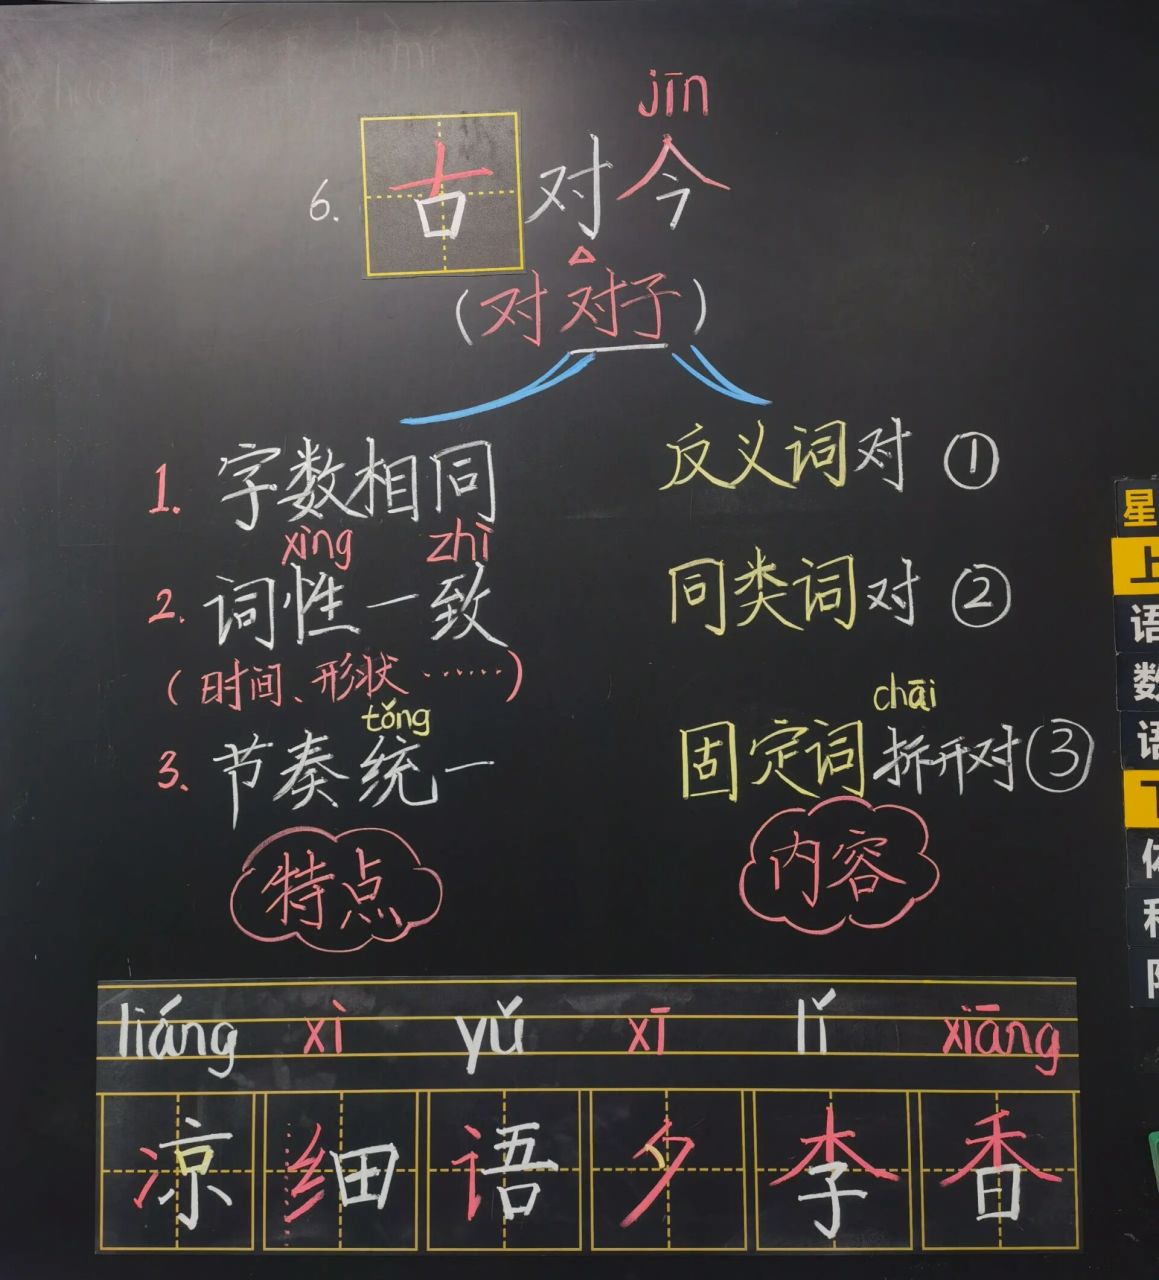 jīn
6. 古对今
(对对子)
1. 字数相同
反义词对 ①
xìng zhì
2. 词性一致
同类词对 ②
(时间、形状……)
tǒng
3. 节奏统一
chāi
固定词拆开对③
特点
内容
liáng xì yǔ xī lǐ xiāng
凉 细 语 夕 李 香
星
上
语
数
语
下
体
科